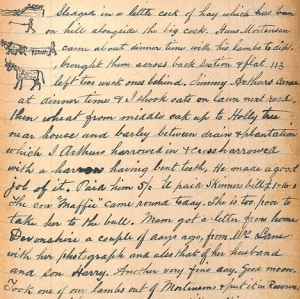 Sledged in a little cock of hay which has been
on hill alongside the big cock. Hans Mortensen
came about dinner time with his lambs to dip.
brought them across back section & flat 113
left two weak ones behind, Jimmy Arthurs came
at dinner time & I shook oats on lawn next road
then wheat from middle oak up to Holly tree
near house and barley between drain & plantation
which J. Arthurs harrowed in & crossharrowed
with a harrow having bent teeth. He made a good
job of it. Paid him 5/- it paid Skinners bill £1-16-0
The cow "Maffie" came round today. She is too poor to
take her to the bull. Mom got a letter from home
Devonshire a couple of days ago, from Mrs Lane
with her photograph and also that of her husband
and son Harry. Another very fine day. Good moon.
Took one of our lambs out of Mortensens & put it in Reserve